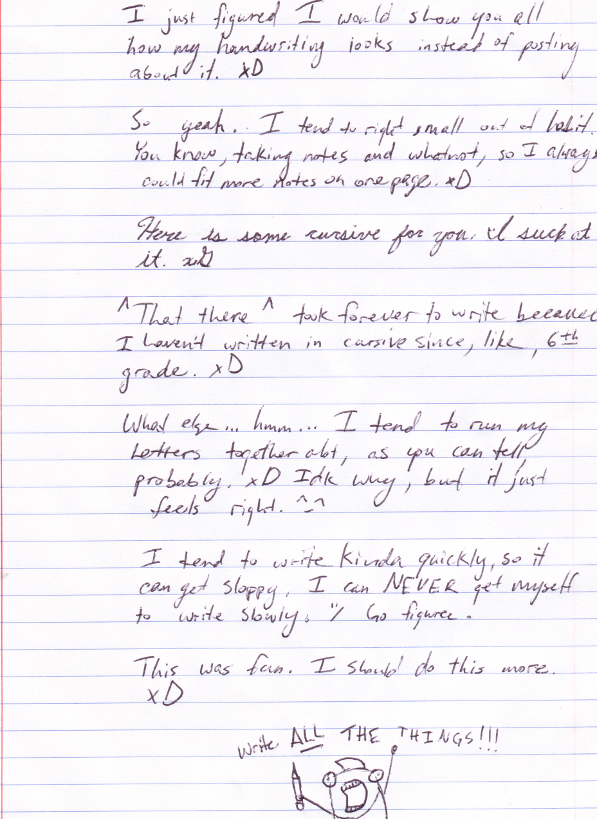 I just figured I would show you all
how my handwriting looks instead of posting
about it. xD
So yeah. I tend to right small out of habit.
You know, taking notes and whatnot, so I always
could fit more notes on one page. xD
Here is some cursive for you. I suck at
it. xD
^ That there ^ took forever to write because
I haven't written in cursive since, like, 6th
grade. xD
What else... hmm... I tend to run my
letters together alot, as you can tell,
probably. xD Idk why, but it just
feels right. ^_^
I tend to write kinda quickly, so it
can get sloppy. I can NEVER get myself
to write slowly. :/ Go figure.
This was fun. I should do this more.
xD
Write ALL THE THINGS!!!